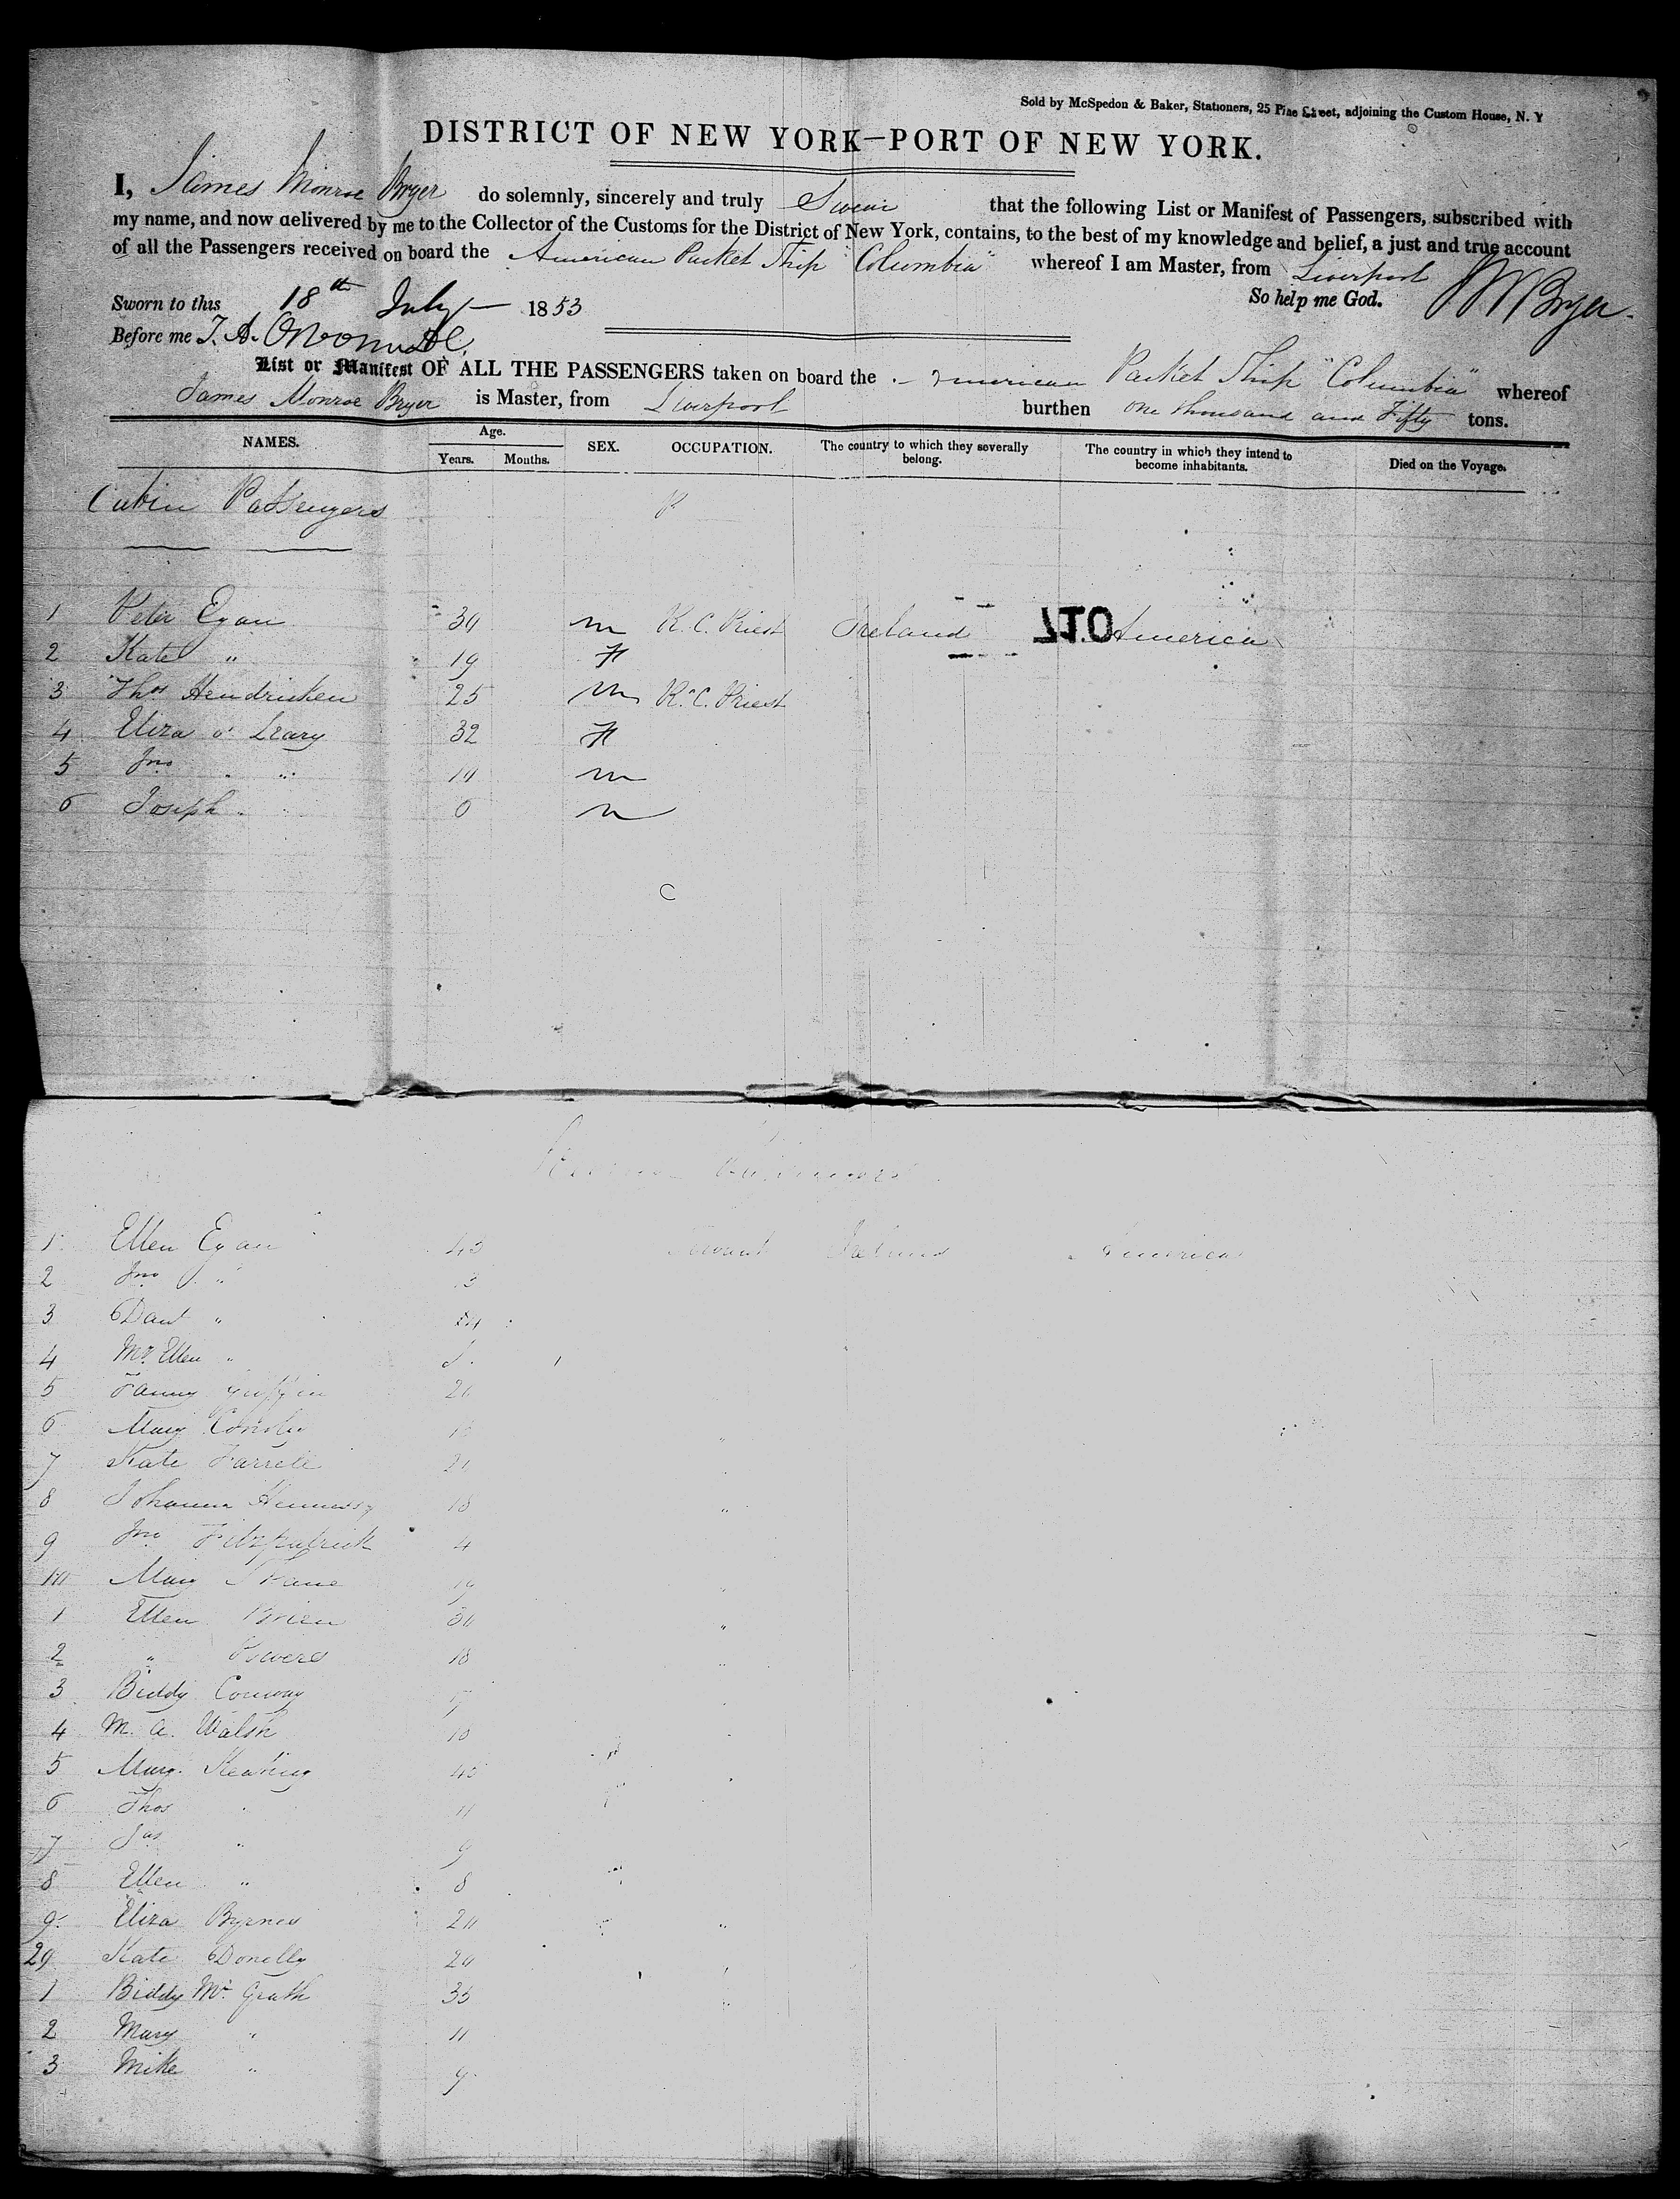 Sold by McSpedon & Baker, Stationers, 25 Pine Street, adjoining the Custom House, N. Y
DISTRICT OF NEW YORK—PORT OF NEW YORK.
I, James Monroe Bryer do solemnly, sincerely and truly Swear that the following List or Manifest of Passengers, subscribed with
my name, and now delivered by me to the Collector of the Customs for the District of New York, contains, to the best of my knowledge and belief, a just and true account
of all the Passengers received on board the American Packet Ship "Columbia" whereof I am Master, from Liverpool
Sworn to this 18th July 1853 So help me God. JMBryer
Before me
List or Manifest OF ALL THE PASSENGERS taken on board the American Packet Ship "Columbia" whereof
James Monroe Bryer is Master, from Liverpool burthen one thousand and Fifty tons.
NAMES. Age. Years. Months. SEX. OCCUPATION. The country to which they severally belong. The country in which they intend to become inhabitants. Died on the Voyage.
Cabin Passengers
1 Peter Egan 30 m R. C. Priest Ireland America
2 Kate " 19 F
3 Thos Hendricken 25 m R. C. Priest
4 Eliza o' Leary 32 F
5 Jno " m
6 Joseph " m
1 Ellen Egan Servant Ireland America
2 Jno "
3 Danl "
4 Ellen "
5 Fanny Griffin 20
6 Mary
7 Kate Farrell
8 Johanna Hennessy 18
9 Jno Fitzpatrick 4
10 Mary
1 Ellen Brien 30
2 " Powers 18
3 Biddy Conway
4 M. A. Walsh
5 Mary Keating
6 Thos " 11
7 Jas " 9
8 Ellen " 8
9 Eliza Byrnes 20
Kate Donelly 20
1 Biddy Mc Grath 35
2 Mary " 11
3 Mike " 9